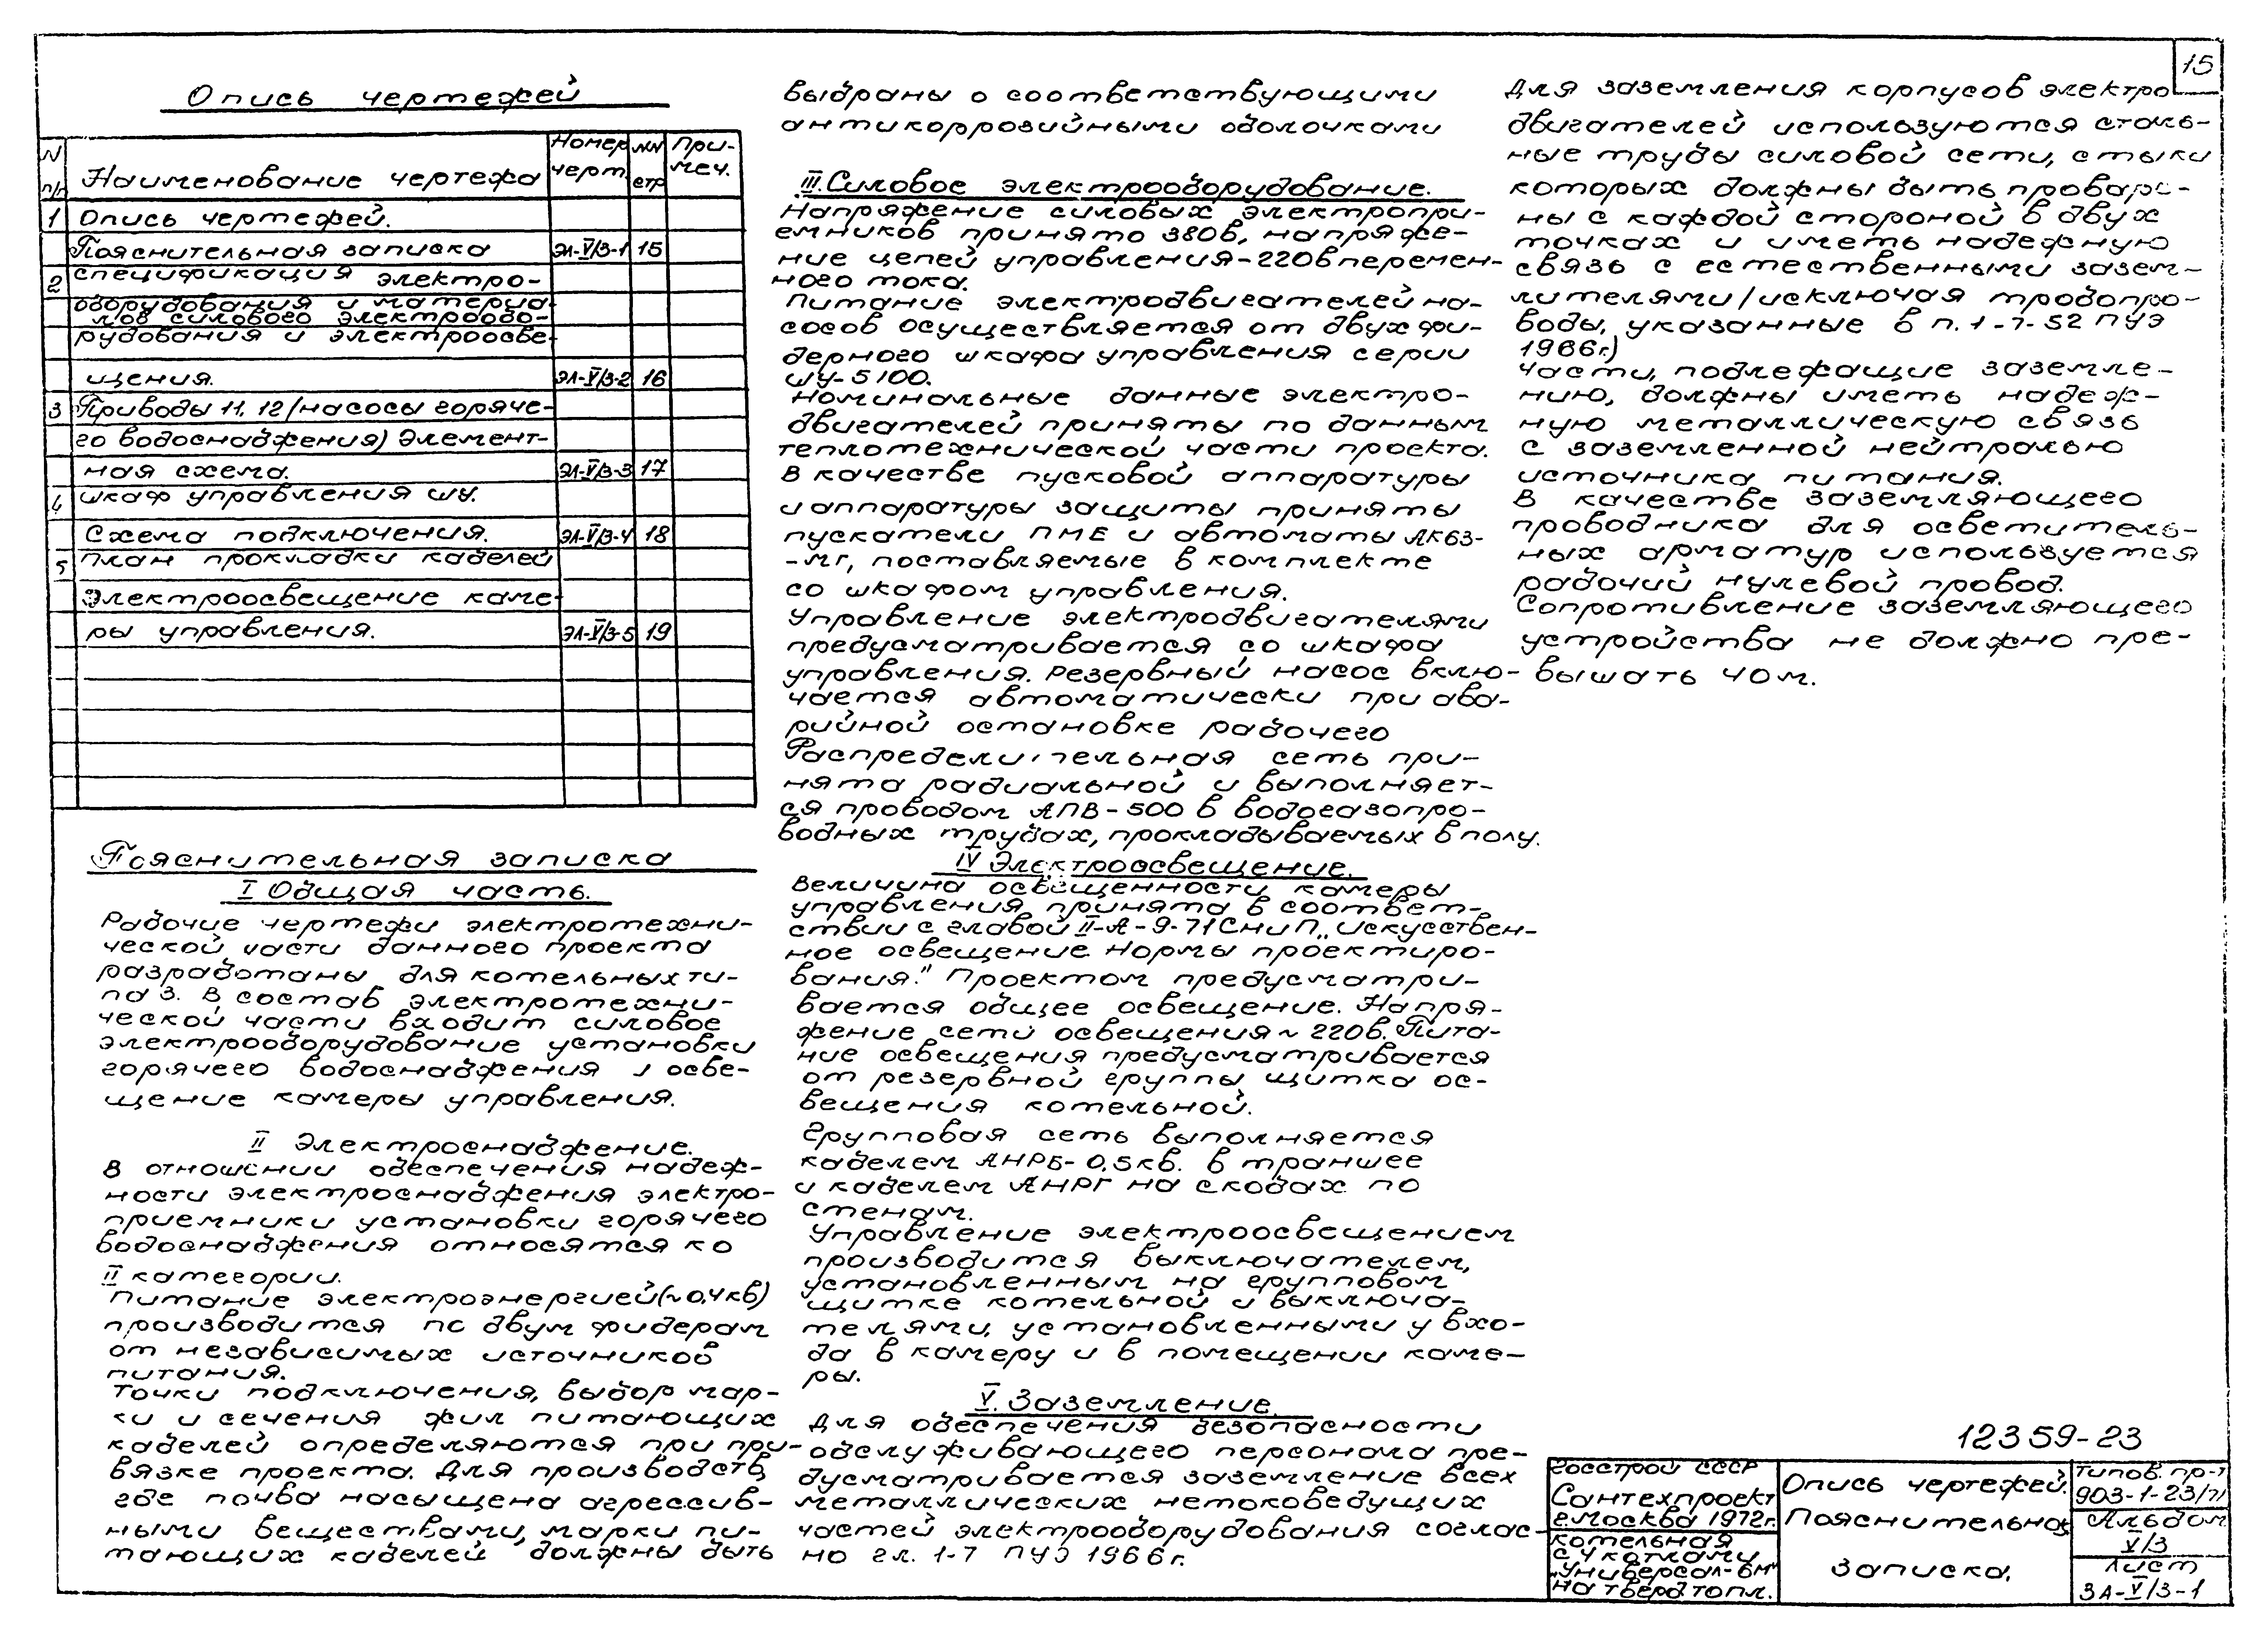 15
Опись чертежей
N п/п
Наименование чертежа
Номер черт.
NN стр
При-меч.
1 Опись чертежей.
Пояснительная записка ЭЛ-V/3-1 15
2 Спецификация электро-
оборудования и материа-
лов силового электрообо-
рудования и электроосве-
щения. ЭЛ-V/3-2 16
3 Приводы 11, 12 /насосы горяче-
го водоснабжения) Элемент-
ная схема. ЭЛ-V/3-3 17
4 Шкаф управления ШУ.
Схема подключения. ЭЛ-V/3-4 18
5 План прокладки кабелей
Электроосвещение каме-
ры управления. ЭЛ-V/3-5 19
Пояснительная записка
I Общая часть.
Рабочие чертежи электротехни-
ческой части данного проекта
разработаны для котельных ти-
па 3. В состав электротехни-
ческой части входит силовое
электрооборудование установки
горячего водоснабжения и осве-
щение камеры управления.
II Электроснабжение.
В отношении обеспечения надеж-
ности электроснабжения электро-
приемники установки горячего
водоснабжения относятся ко
II категории.
Питание электроэнергией (~0,4кв)
производится по двум фидерам
от независимых источников
питания.
Точки подключения, выбор мар-
ки и сечения жил питающих
кабелей определяются при при-
вязке проекта. Для производств,
где почва насыщена агрессив-
ными веществами, марки пи-
тающих кабелей должны быть
выбраны о соответствующими
антикоррозийными оболочками
III. Силовое электрооборудование.
Напряжение силовых электропри-
емников принято 380в, напряже-
ние цепей управления-220в перемен-
ного тока.
Питание электродвигателей на-
сосов осуществляется от двухфи-
дерного шкафа управления серии
ШУ-5100.
Номинальные данные электро-
двигателей приняты по данным
теплотехнической части проекта.
В качестве пусковой аппаратуры
и аппаратуры защиты приняты
пускатели ПМЕ и автоматы АК63-
-МГ, поставляемые в комплекте
со шкафом управления.
Управление электродвигателями
предусматривается со шкафа
управления. Резервный насос вклю-
чается автоматически при ава-
рийной остановке рабочего
Распределительная сеть при-
нята радиальной и выполняет-
ся проводом АПВ-500 в водогазопро-
водных трубах, прокладываемых в полу.
IV Электроосвещение.
Величина освещенности камеры
управления принята в соответ-
ствии с главой II-А-9-71 СНиП „Искусствен-
ное освещение. Нормы проектиро-
вания." Проектом предусматри-
вается общее освещение. Напря-
жение сети освещения ~ 220в. Пита-
ние освещения предусматривается
от резервной группы щитка ос-
вещения котельной.
Групповая сеть выполняется
кабелем АНРБ-0,5кв. в траншее
и кабелем АНРГ на скобах по
стенам.
Управление электроосвещением
производится выключателем,
установленным на групповом
щитке котельной и выключа-
телями, установленными у вхо-
да в камеру и в помещении каме-
ры.
V. Заземление.
Для обеспечения безопасности
обслуживающего персонала пре-
дусматривается заземление всех
металлических нетоковедущих
частей электрооборудования соглас-
но гл. 1-7 ПУЭ 1966г.
Для заземления корпусов электро
двигателей используются сталь-
ные трубы силовой сети, стыки
которых должны быть проваре-
ны с каждой стороной в двух
точках и иметь надежную
связь с естественными зазем-
лителями/исключая трубопро-
воды, указанные в п. 1-7-52 ПУЭ
1966г.)
Части, подлежащие заземле-
нию, должны иметь надеж-
ную металлическую связь
с заземленной нейтралью
источника питания.
В качестве заземляющего
проводника для осветитель-
ных арматур используется
рабочий нулевой провод.
Сопротивление заземляющего
устройства не должно пре-
вышать 4ом.
12359-23
Госстрой СССР
Сантехпроект
г.Москва 1972г.
Котельная
с 4 котлами
„Универсал-6М"
на тверд.топл.
Опись чертежей.
Пояснительная
записка.
Типов. пр-т
903-1-23/71
Альбом
V/3
Лист
ЭЛ-V/3-1